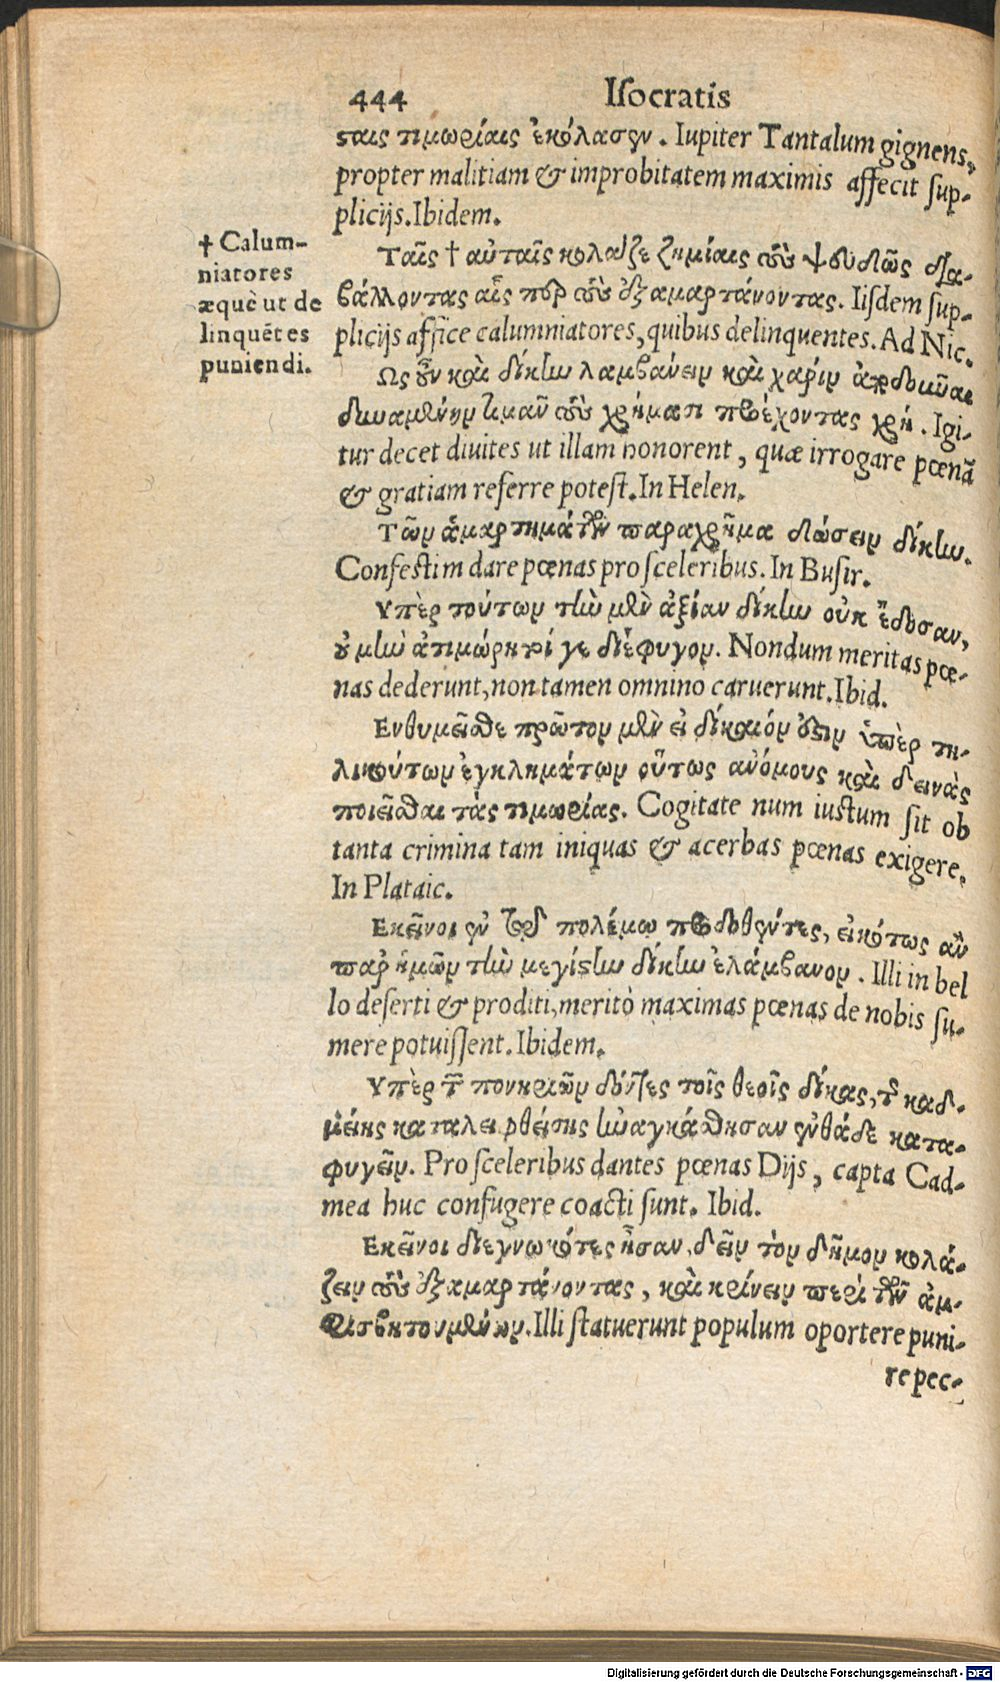 444 Isocratis
σαις τιμωρίαις ἐκόλασεν. Iupiter Tantalum gignens,
propter malitiam & improbitatem maximis affecit sup-
plicijs. Ibidem.
† Calum-
niatores
æquè ut de
linquẽt es
puniendi.
Ταῖς † αὐταῖς κολαζε ζημίαις τοὺς ψευδῶς δια-
βάλλοντας αἷς περ τοὺς ἐξαμαρτάνοντας. Iisdem sup-
plicijs affice calumniatores, quibus delinquentes. Ad Nic.
Ως οὖν καὶ δίκην λαμβάνειν καὶ χάριν ἀποδοῦναι
δυναμένην τιμᾶν τοὺς χρήμασι προέχοντας χρή. Igi-
tur decet diuites ut illam honorent, quæ irrogare pœnã
& gratiam referre potest. In Helen.
Τῶν ἁμαρτημάτων παραχρῆμα δώσειν δίκην.
Confestim dare pœnas pro sceleribus. In Busir.
Υπὲρ τούτων τὴν μὲν ἀξίαν δίκην οὐκ ἔδοσαν,
οὐ μὴν ἀτιμώρητοί γε διέφυγον. Nondum meritas pœ-
nas dederunt, non tamen omnino caruerunt. Ibid.
Ενθυμεῖσθε πρῶτον μὲν εἰ δίκαιόν ἐστιν ὑπὲρ τη-
λικούτων ἐγκλημάτων οὕτως ἀνόμους καὶ δεινὰς
ποιεῖσθαι τὰς τιμωρίας. Cogitate num iustum sit ob
tanta crimina tam iniquas & acerbas pœnas exigere.
In Plataic.
Εκεῖνοι ἐν τῷ πολέμῳ προδοθέντες, εἰκότως ἂν
παρ' ἡμῶν τὴν μεγίστην δίκην ἐλάμβανον. Illi in bel
lo deserti & proditi, meritò maximas pœnas de nobis su-
mere potuissent. Ibidem.
Υπὲρ τῶν πονηριῶν δόντες τοῖς θεοῖς δίκας, τῆς καδ-
μείης καταλειφθείσης ἠναγκάσθησαν ἐνθάδε κατα-
φυγεῖν. Pro sceleribus dantes pœnas Dijs, capta Cad-
mea huc confugere coacti sunt. Ibid.
Εκεῖνοι διεγνωκότες ἦσαν, δεῖν τὸν δῆμον κολά-
ζειν τοὺς ἐξαμαρτάνοντας, καὶ κρίνειν περὶ τῶν ἀμ-
φισβητουμένων. Illi statuerunt populum oportere puni-
re pec-
Digitalisierung gefördert durch die Deutsche Forschungsgemeinschaft - DFG